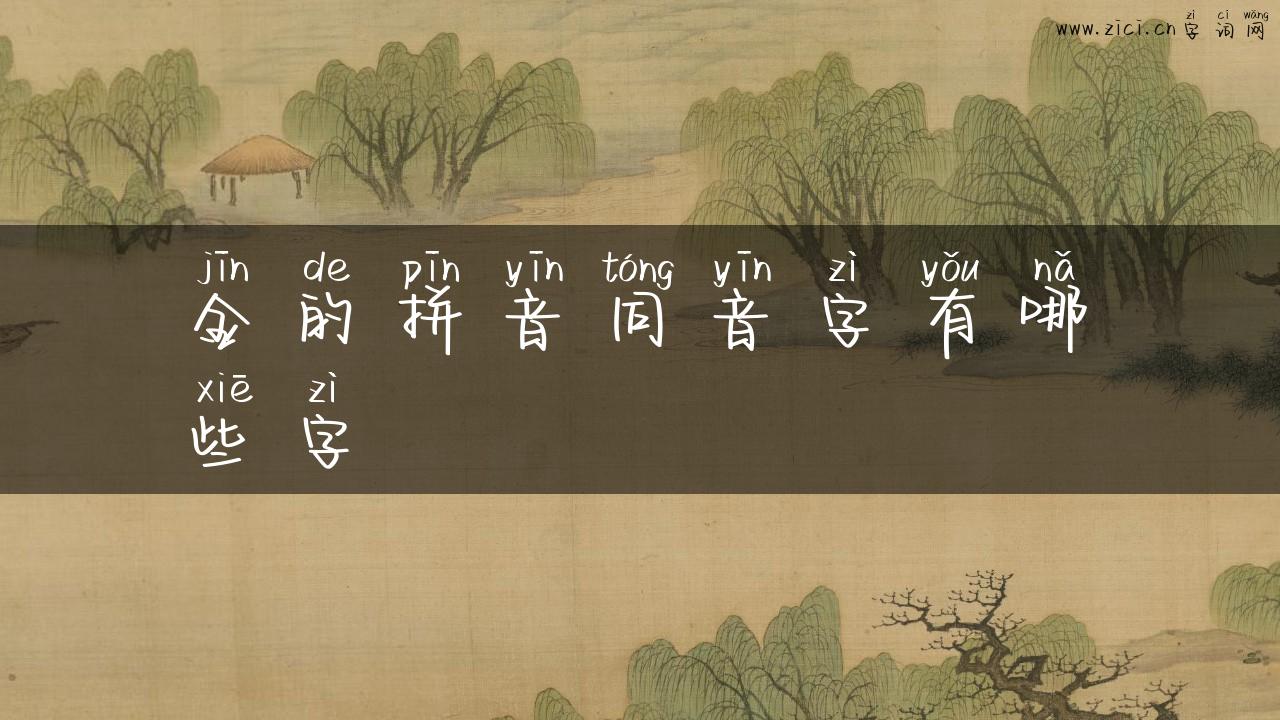 zì cí wǎng
www.zici.cn 字 词 网
jīn de pīn yīn tóng yīn zì yǒu nǎ
金 的 拼 音 同 音 字 有 哪
xiē zì
些 字